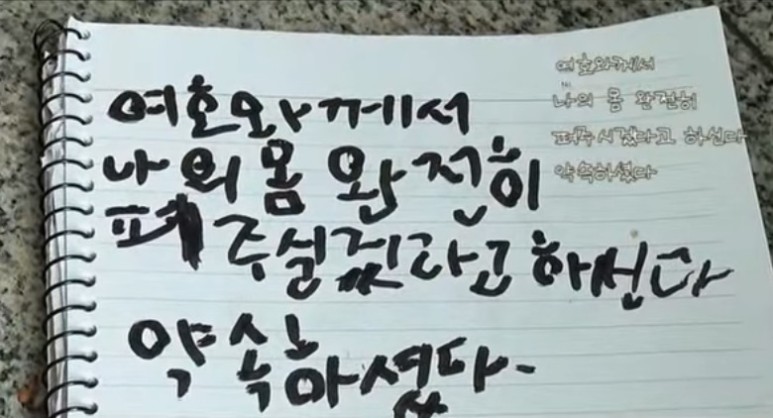 여호와께서
나의 몸 완전히
펴 주실겄라고 하신다
약속하셨다-
여호와께서
나의 몸 완전히
펴주시겠다고 하신다
약속하셨다